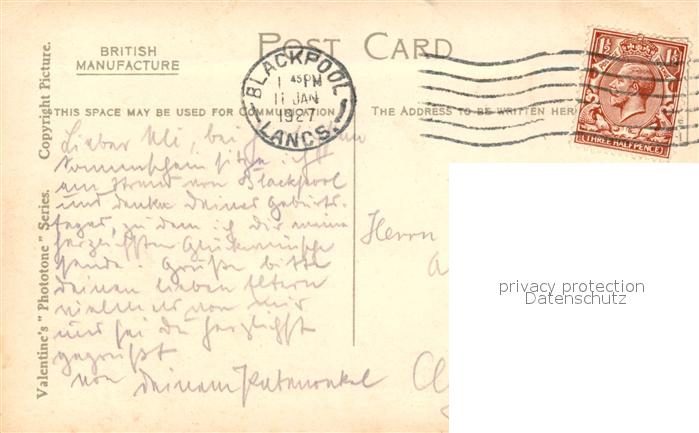 BRITISH
MANUFACTURE
POST CARD
BLACKPOOL
1 45 PM
11 JAN
1927
LANCS.
1½
THREE HALFPENCE
THIS SPACE MAY BE USED FOR COMMUNICATION
THE ADDRESS TO BE WRITTEN HERE
Valentine's "Phototone" Series. Copyright Picture.
Lieber Uli, bei
Sonnenschein sitze ich
am Strand von Blackpool
und denke deines Geburts-
tages, zu dem ich dir meine
herzlichsten Glückwünsche
sende. Grüße bitte
deinen lieben Eltern
von mir
und sei du herzlichst
gegrüßt
von deinem Patenonkel
Herrn
privacy protection
Datenschutz